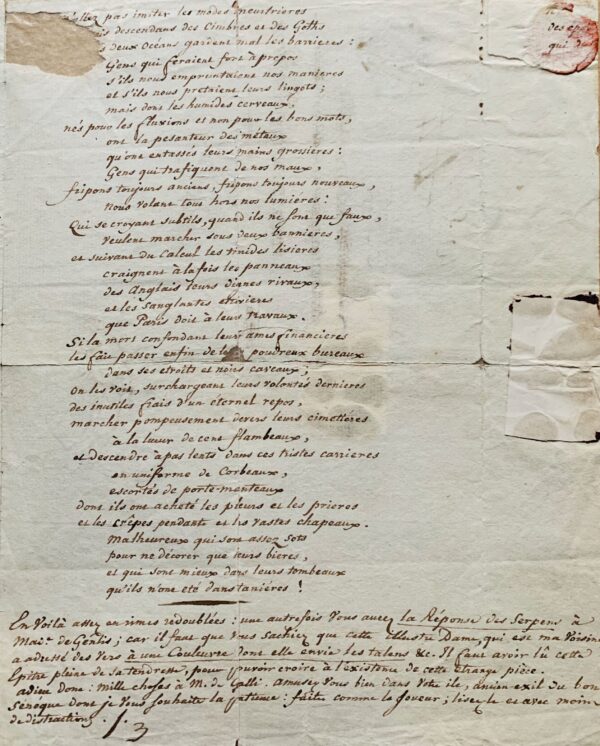 pas imiter les modes meurtrieres
descendans des Cimbres et des Goths
deux Oceans gardent mal les barrieres :
Gens qui feraient fort à propos
s'ils nous empruntaient nos manieres
et s'ils nous prêtaient leurs lingots ;
mais dont les humides cerveaux,
nés pour les fluxions et non pour les bons mots,
ont la pesanteur des métaux
qu'one entassés leurs mains grossieres :
Gens qui trafiquent de nos maux,
fripons toujours anciens, fripons toujours nouveaux,
nous volant tous hors nos lumieres :
Qui se croyant subtils, quand ils ne sont que faux,
veulent marcher sous deux bannieres,
et suivant du Calcul les timides lisieres
craignent à la fois les panneaux
des Anglais leurs dignes rivaux,
et les sanglantes etrivieres
que Paris doit à leurs travaux.
Si la mort confondant leurs ames financieres
les fait passer enfin de leurs poudreux bureaux
dans ses etroits et noirs caveaux ;
On les voit, surchargeant leurs volontés dernieres
des inutiles frais d'un eternel repos,
marcher pompeusement devers leurs cimetieres
à la lueur de cent flambeaux,
et descendre à pas lents dans ces tristes carrieres
en uniforme de Corbeaux,
escortés de porte-manteaux
dont ils ont acheté les pleurs et les prieres
et les crêpes pendants et les vastes chapeaux.
Malheureux qui sont assez sots
pour ne décorer que leurs bieres,
et qui sont mieux dans leurs tombeaux
qu'ils n'ont eté dans tanieres !
des
qui
En Voilà assez en rimes redoublées : une autrefois vous aurez la Réponse des Serpens à
Mad.e de Genlis ; car il faut que vous sachiez que cette illustre Dame, qui est ma Voisine
a adressé des Vers à une Couleuvre dont elle envie les talens &c. Il faut avoir lû cette
Epitre pleine de sa tendresse, pour pouvoir croire à l'existence de cette étrange pièce.
adieu donc : mille choses à M. de Galli. amusez vous bien dans votre ile, ancien exil du bon
Seneque dont je vous souhaite la patience : faites comme le Joueur ; lisez le et avec moins
de distractions.